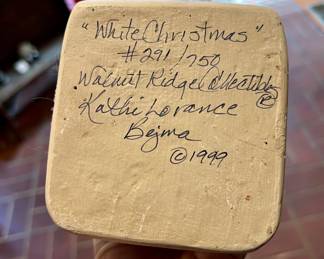 "White Christmas"
#291/750
Walnut Ridge Collectibles ®
Kathi Lorance
Bejma
© 1999